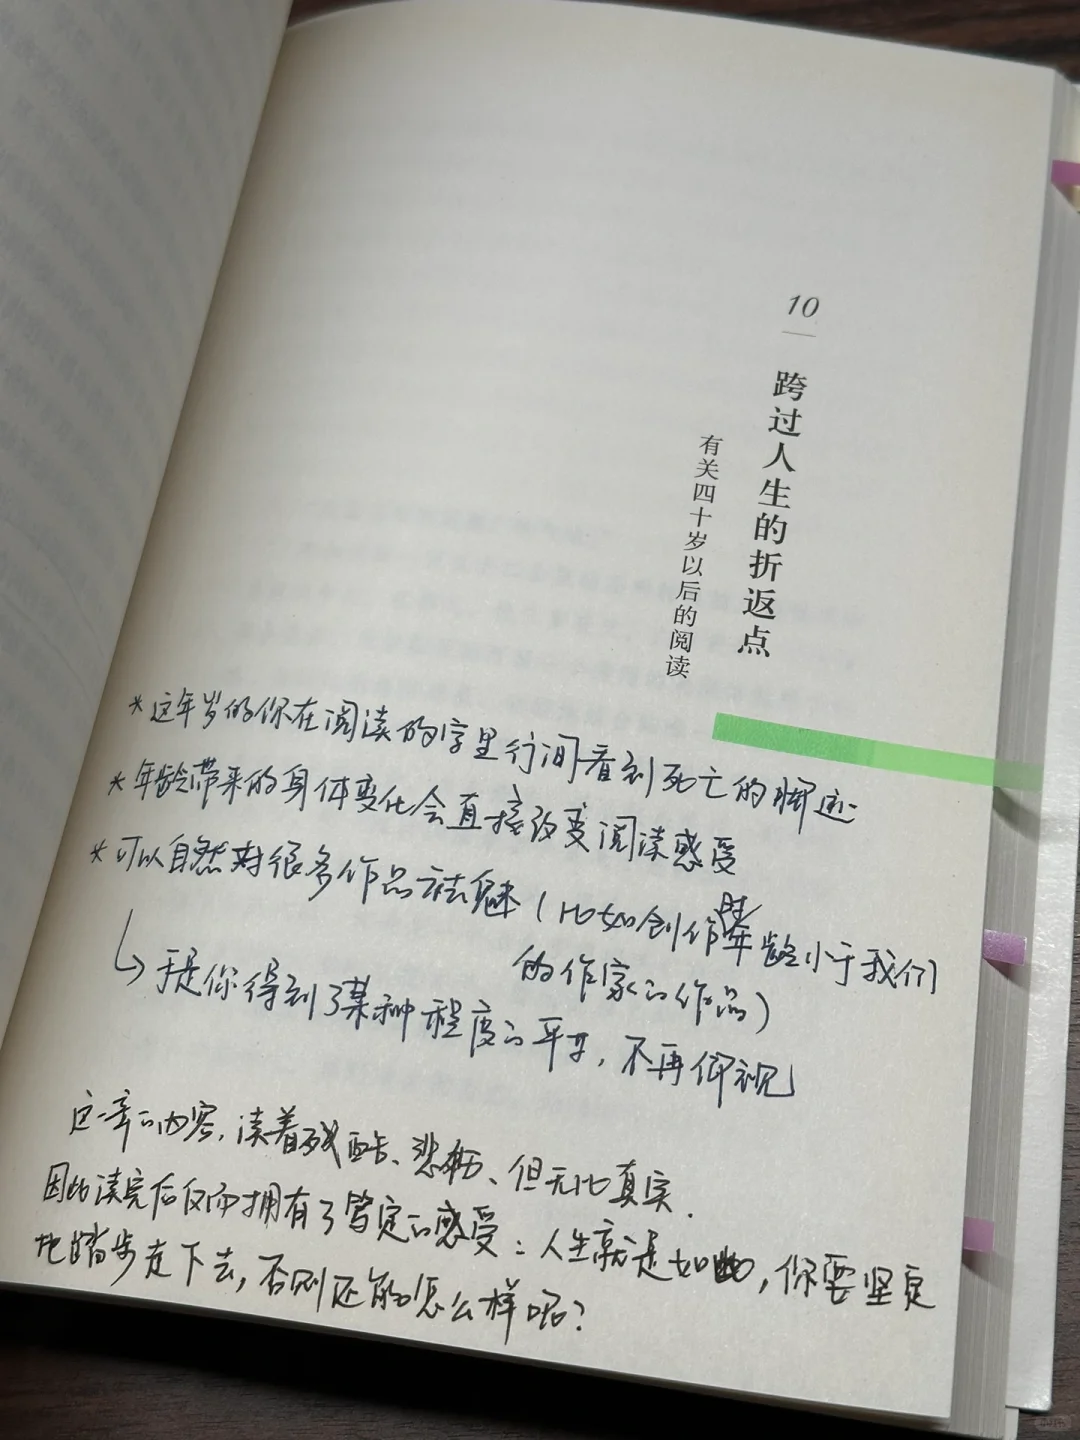 10
跨过人生的折返点
有关四十岁以后的阅读
*这年岁的你在阅读的字里行间看到死亡的脚迹
*年龄带来的身体变化会直接改变阅读感受
*可以自然对很多作品祛魅(比如创作时年龄小于我们
的作家的作品)
↳于是你得到了某种程度的平等,不再仰视
这一章的内容,读着残酷、悲场、但无比真实.
因此读完后反而拥有了笃定的感受:人生就是如此,你要坚定
地踏步走下去,否则还能怎么样呢?